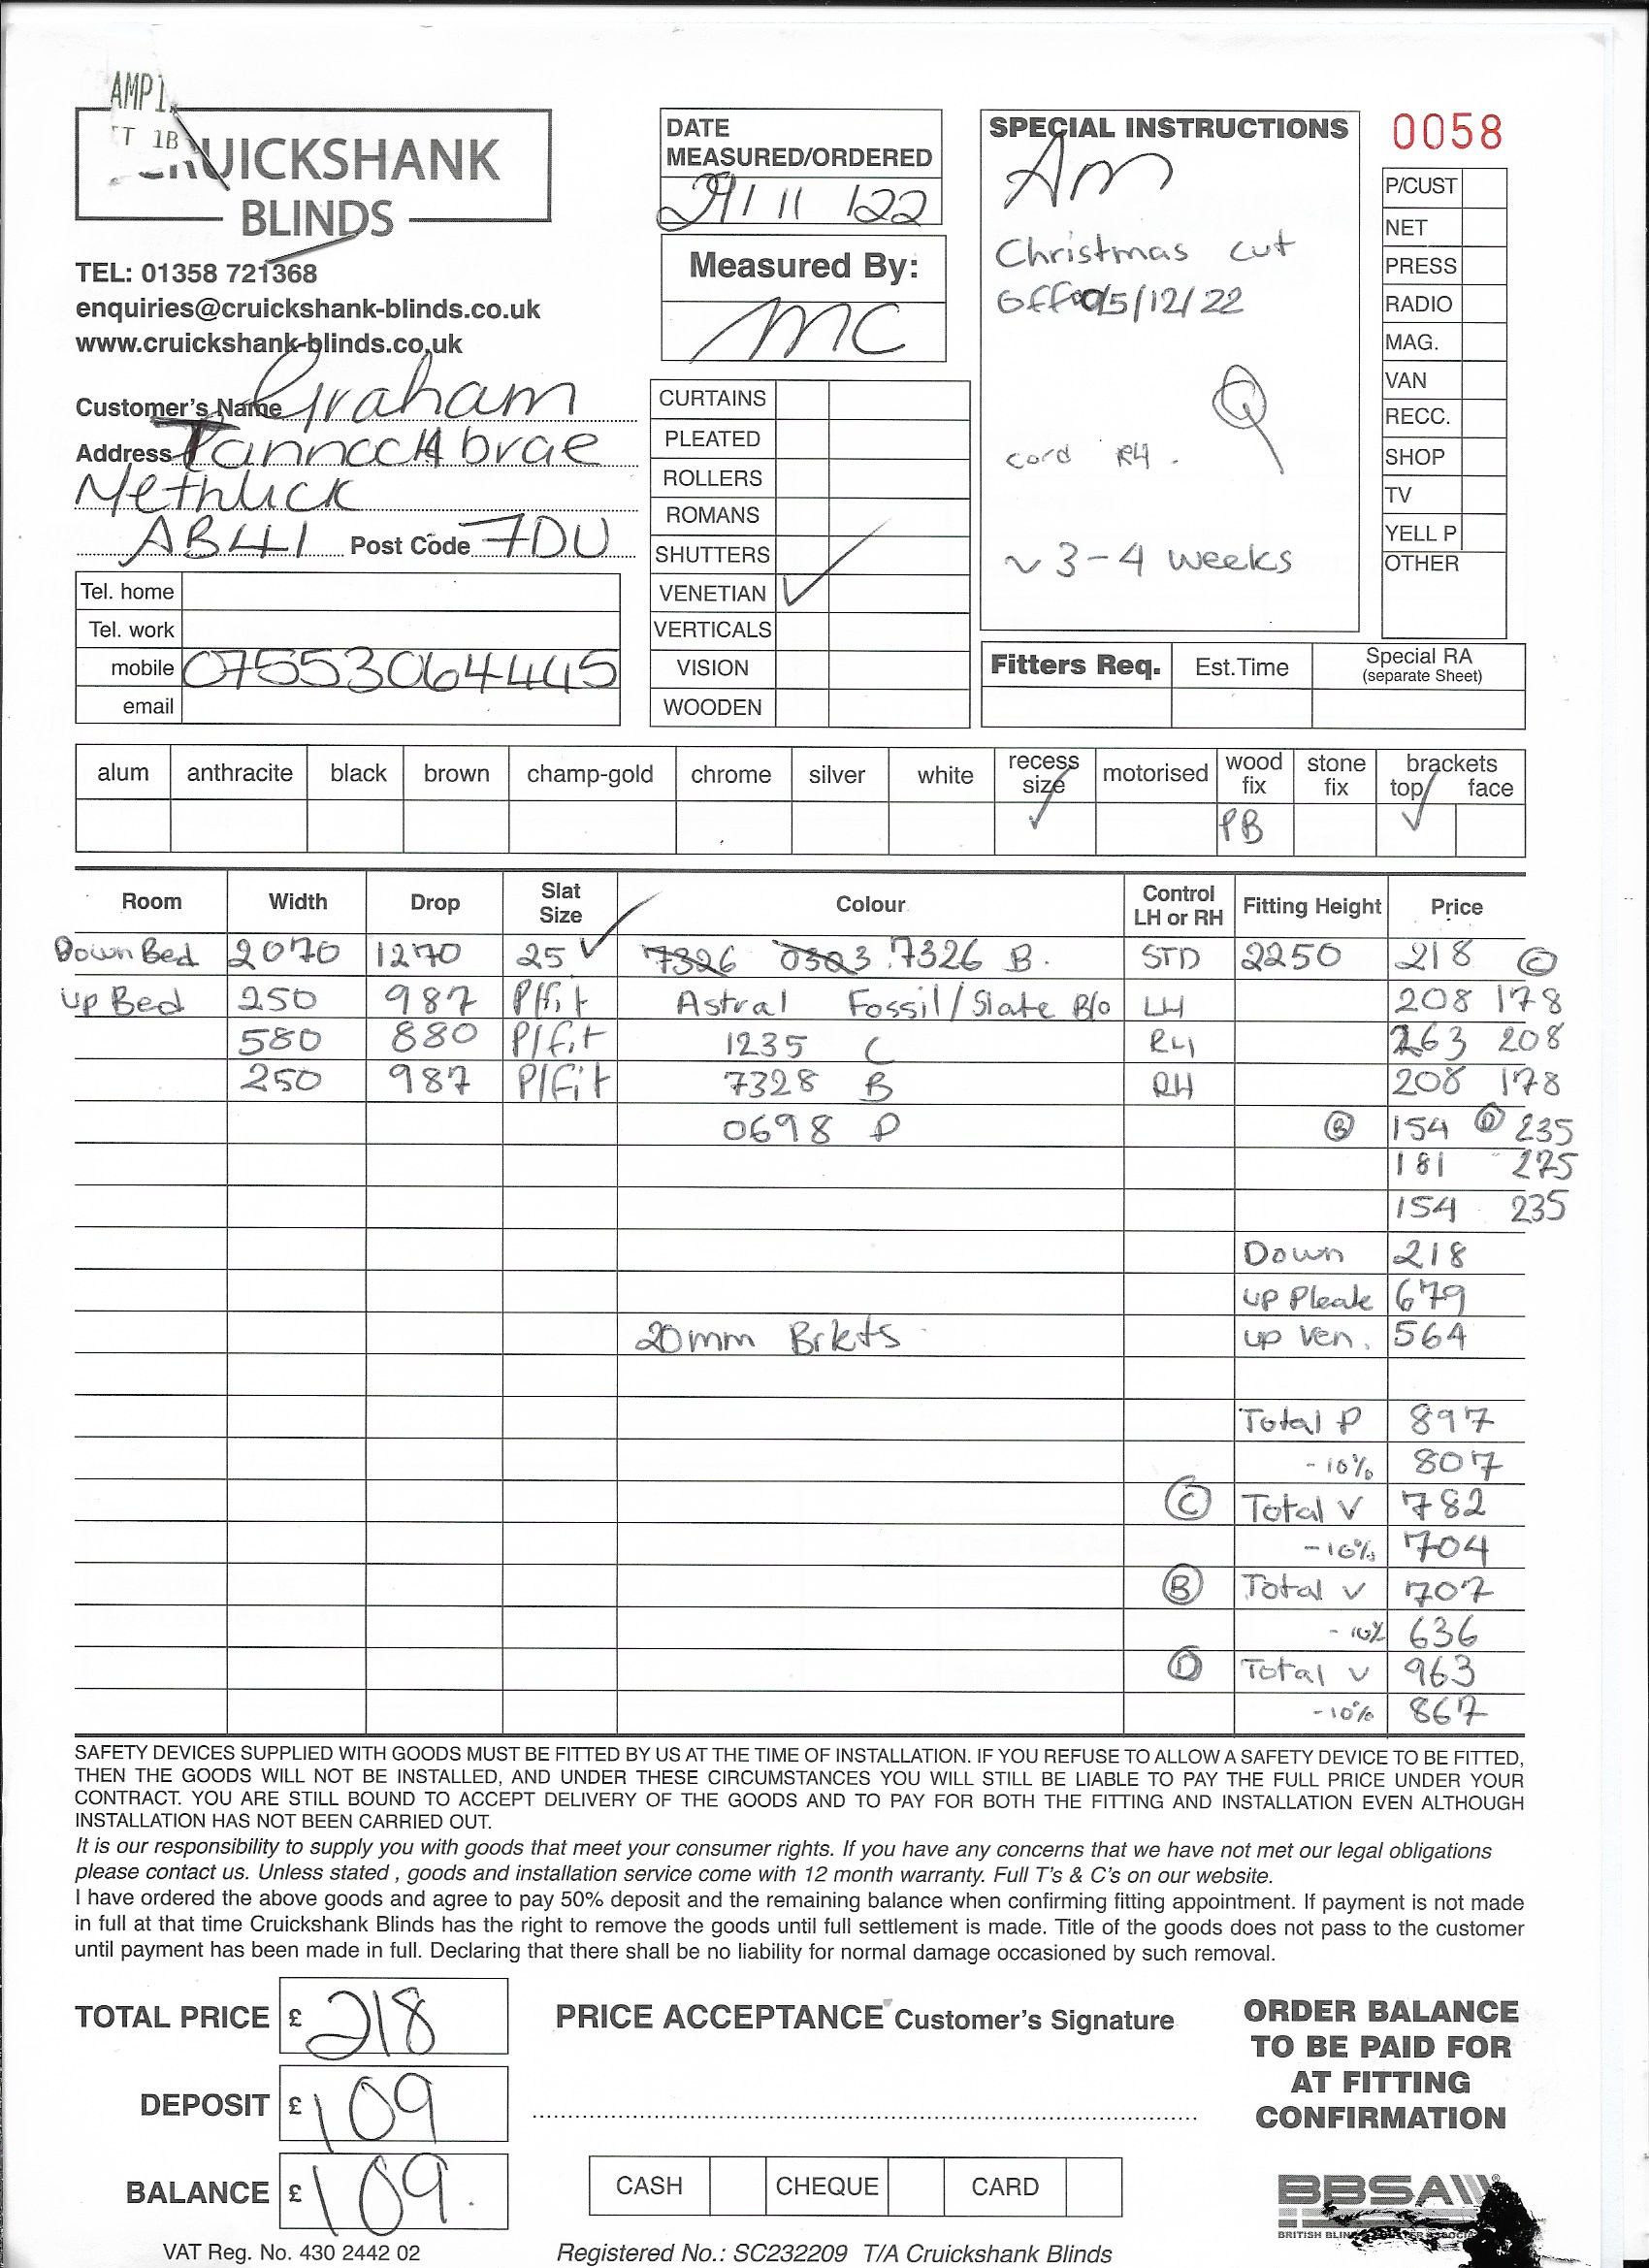 AMP1
ET 1B
CRUICKSHANK
BLINDS
TEL: 01358 721368
enquiries@cruickshank-blinds.co.uk
www.cruickshank-blinds.co.uk
Customer's Name Graham
Address Tannoch brae
Methlick
AB41 Post Code 7DU
Tel. home
Tel. work
mobile 07553064445
email
DATE
MEASURED/ORDERED
29/ 11 /22
Measured By:
MC
CURTAINS
PLEATED
ROLLERS
ROMANS
SHUTTERS
VENETIAN ✓
VERTICALS
VISION
WOODEN
SPECIAL INSTRUCTIONS
Am
Christmas cut
off 05/12/22
Q
cord RH.
~ 3-4 weeks
0058
P/CUST
NET
PRESS
RADIO
MAG.
VAN
RECC.
SHOP
TV
YELL P
OTHER
Fitters Req. Est.Time Special RA
(separate Sheet)
alum anthracite black brown champ-gold chrome silver white recess size motorised wood fix stone fix brackets top face
✓ PB ✓
Room Width Drop Slat Size Colour Control LH or RH Fitting Height Price
Down Bed 2070 1270 25 ✓ 7326 0303 7326 B. STD 2250 218 C
Up Bed 250 987 P/fit Astral Fossil/Slate B/o LH 208 178
580 880 P/fit 1235 C RH 263 208
250 987 P/Fit 7328 B RH 208 178
0698 P B 154 D 235
181 275
154 235
Down 218
up Pleate 679
20mm Brkts up Ven. 564
Total P 897
-10% 807
C Total V 782
-10% 704
B Total v 707
-10% 636
D Total v 963
-10% 867
SAFETY DEVICES SUPPLIED WITH GOODS MUST BE FITTED BY US AT THE TIME OF INSTALLATION. IF YOU REFUSE TO ALLOW A SAFETY DEVICE TO BE FITTED,
THEN THE GOODS WILL NOT BE INSTALLED, AND UNDER THESE CIRCUMSTANCES YOU WILL STILL BE LIABLE TO PAY THE FULL PRICE UNDER YOUR
CONTRACT. YOU ARE STILL BOUND TO ACCEPT DELIVERY OF THE GOODS AND TO PAY FOR BOTH THE FITTING AND INSTALLATION EVEN ALTHOUGH
INSTALLATION HAS NOT BEEN CARRIED OUT.
It is our responsibility to supply you with goods that meet your consumer rights. If you have any concerns that we have not met our legal obligations
please contact us. Unless stated , goods and installation service come with 12 month warranty. Full T's & C's on our website.
I have ordered the above goods and agree to pay 50% deposit and the remaining balance when confirming fitting appointment. If payment is not made
in full at that time Cruickshank Blinds has the right to remove the goods until full settlement is made. Title of the goods does not pass to the customer
until payment has been made in full. Declaring that there shall be no liability for normal damage occasioned by such removal.
TOTAL PRICE £ 218
DEPOSIT £ 109
BALANCE £ 109.
PRICE ACCEPTANCE Customer's Signature
CASH CHEQUE CARD
ORDER BALANCE
TO BE PAID FOR
AT FITTING
CONFIRMATION
BBSA
BRITISH
VAT Reg. No. 430 2442 02
Registered No.: SC232209 T/A Cruickshank Blinds